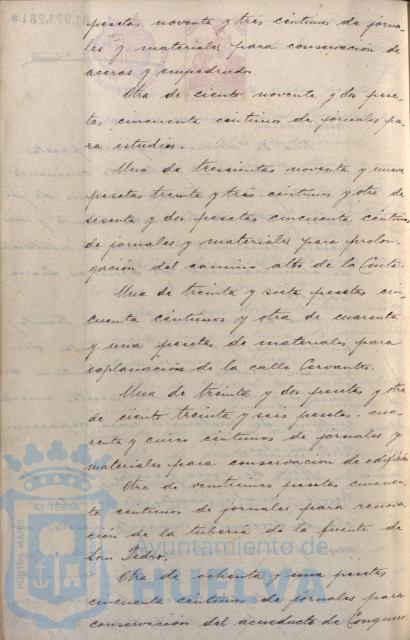 pesetas noventa y tres céntimos de jorna-
les y materiales para conservación de
aceras y empedrados.
Otra de ciento noventa y dos pese-
tas cincuenta céntimos de jornales pa-
ra estudios.
Una de trescientas noventa y nueve
pesetas treinta y tres céntimos y otra de
sesenta y dos pesetas cincuenta céntimos
de jornales y materiales para prolon-
gación del camino alto de la Cinta.
Una de treinta y siete pesetas cin-
cuenta céntimos y otra de cuarenta
y una pesetas de materiales para
explanación de la calle Cervantes.
Una de treinta y dos pesetas y otra
de ciento treinta y seis pesetas cua-
renta y cinco céntimos de jornales y
materiales para conservación de edificios
Otra de veinticinco pesetas cincuen-
ta céntimos de jornales para renova-
ción de la tubería de la fuente de
San Pedro.
Otra de ochenta y una pesetas
cincuenta céntimos de jornales para
conservación del acueducto de Conquero
PORTUS MARIS ET TERRÆ
Ayuntamiento de
HUELVA